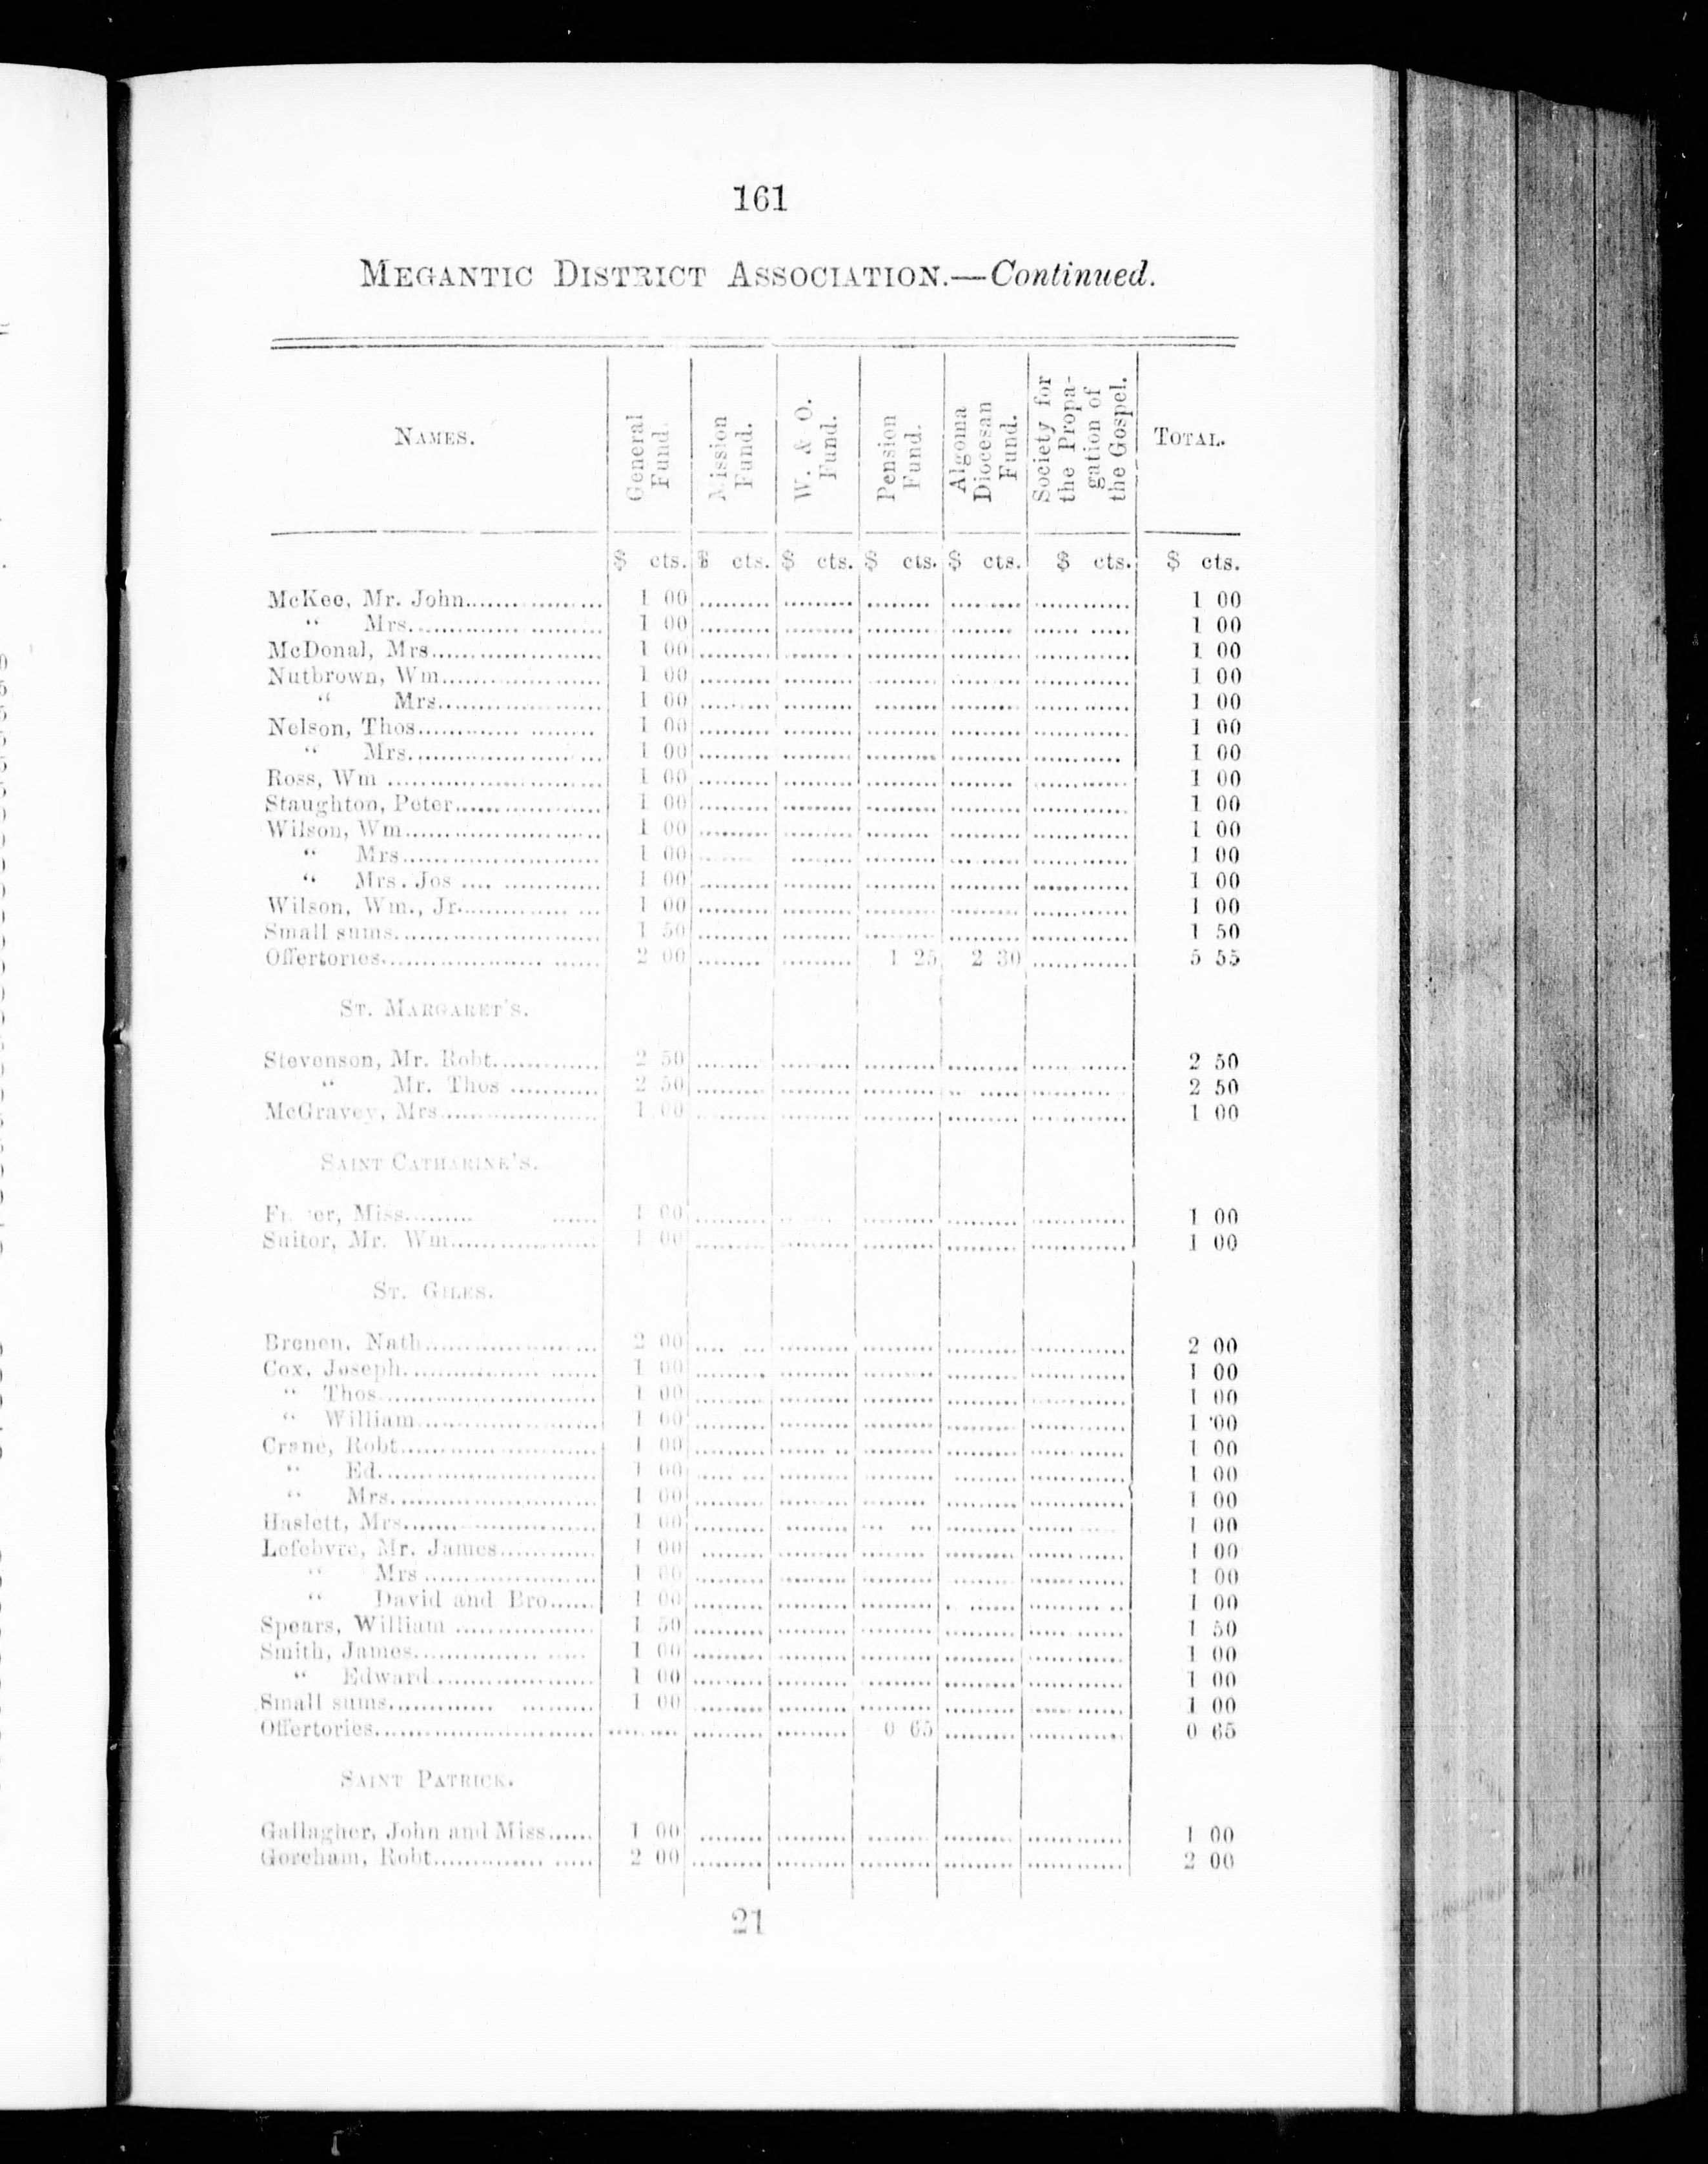 161
MEGANTIC DISTRICT ASSOCIATION.—Continued.
NAMES. General Fund. Mission Fund. W. & O. Fund. Pension Fund. Algoma Diocesan Fund. Society for the Propa-gation of the Gospel. TOTAL.
$ cts. $ cts. $ cts. $ cts. $ cts. $ cts. $ cts.
McKee, Mr. John 1 00 1 00
“ Mrs. 1 00 1 00
McDonal, Mrs. 1 00 1 00
Nutbrown, Wm. 1 00 1 00
“ Mrs. 1 00 1 00
Nelson, Thos. 1 00 1 00
“ Mrs. 1 00 1 00
Ross, Wm 1 00 1 00
Staughton, Peter 1 00 1 00
Wilson, Wm. 1 00 1 00
“ Mrs. 1 00 1 00
“ Mrs. Jos 1 00 1 00
Wilson, Wm., Jr. 1 00 1 00
Small sums 1 50 1 50
Offertories 2 00 1 25 2 30 5 55
ST. MARGARET'S.
Stevenson, Mr. Robt. 2 50 2 50
“ Mr. Thos 2 50 2 50
McGravey, Mrs. 1 00 1 00
SAINT CATHARINE'S.
Miss 1 00 1 00
Suitor, Mr. Wm. 1 00 1 00
ST. GILES.
Brenen, Nath. 2 00 2 00
Cox, Joseph. 1 00 1 00
“ Thos. 1 00 1 00
“ William 1 00 1 00
Crane, Robt. 1 00 1 00
“ Ed. 1 00 1 00
“ Mrs. 1 00 1 00
Haslett, Mrs. 1 00 1 00
Lefebvre, Mr. James 1 00 1 00
“ Mrs 1 00 1 00
“ David and Bro. 1 00 1 00
Spears, William 1 50 1 50
Smith, James 1 00 1 00
“ Edward 1 00 1 00
Small sums 1 00 1 00
Offertories 0 65 0 65
SAINT PATRICK.
Gallagher, John and Miss 1 00 1 00
Goreham, Robt. 2 00 2 00
21